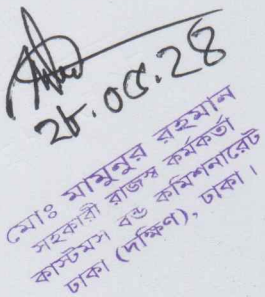 ২৮.০৫.২৪
মোঃ মামুনুর রহমান
সহকারী রাজস্ব কর্মকর্তা
কাস্টমস বন্ড কমিশনারেট
ঢাকা (দক্ষিণ), ঢাকা।